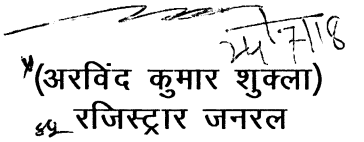 (अरविंद कुमार शुक्ला)
रजिस्ट्रार जनरल